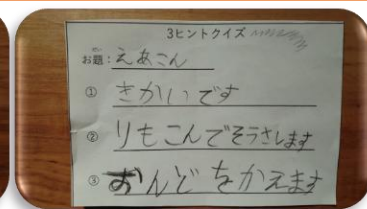 3ヒントクイズ
お題：えあこん
① きかいです
② りもこんでそうさします
③ おんどをかえます